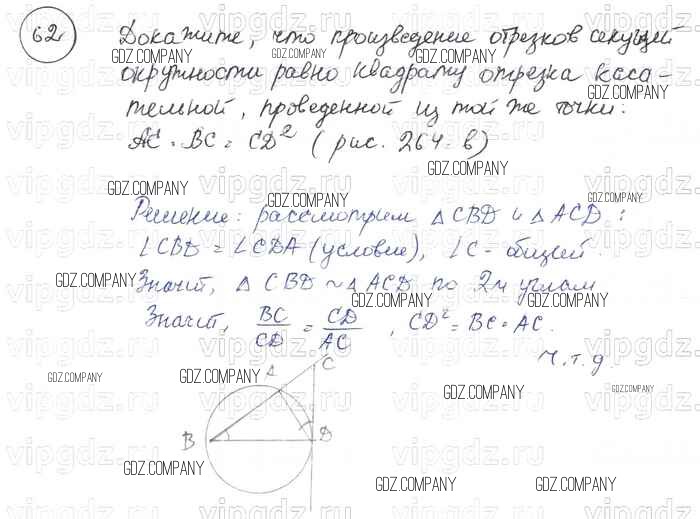 62
Докажите, что произведение отрезков секущей
окружности равно квадрату отрезка каса-
тельной, проведенной из той же точки:
AC · BC = CD² (рис. 264. в)
Решение: рассмотрим △ CBD и △ ACD:
∠CBD = ∠CDA (условие), ∠C - общий.
Значит, △ CBD ~ △ ACD по 2м углам
Значит, BC/CD = CD/AC, CD² = BC · AC.
Ч.т.д.
C
A
B
D
GDZ.COMPANY
vipgdz.ru